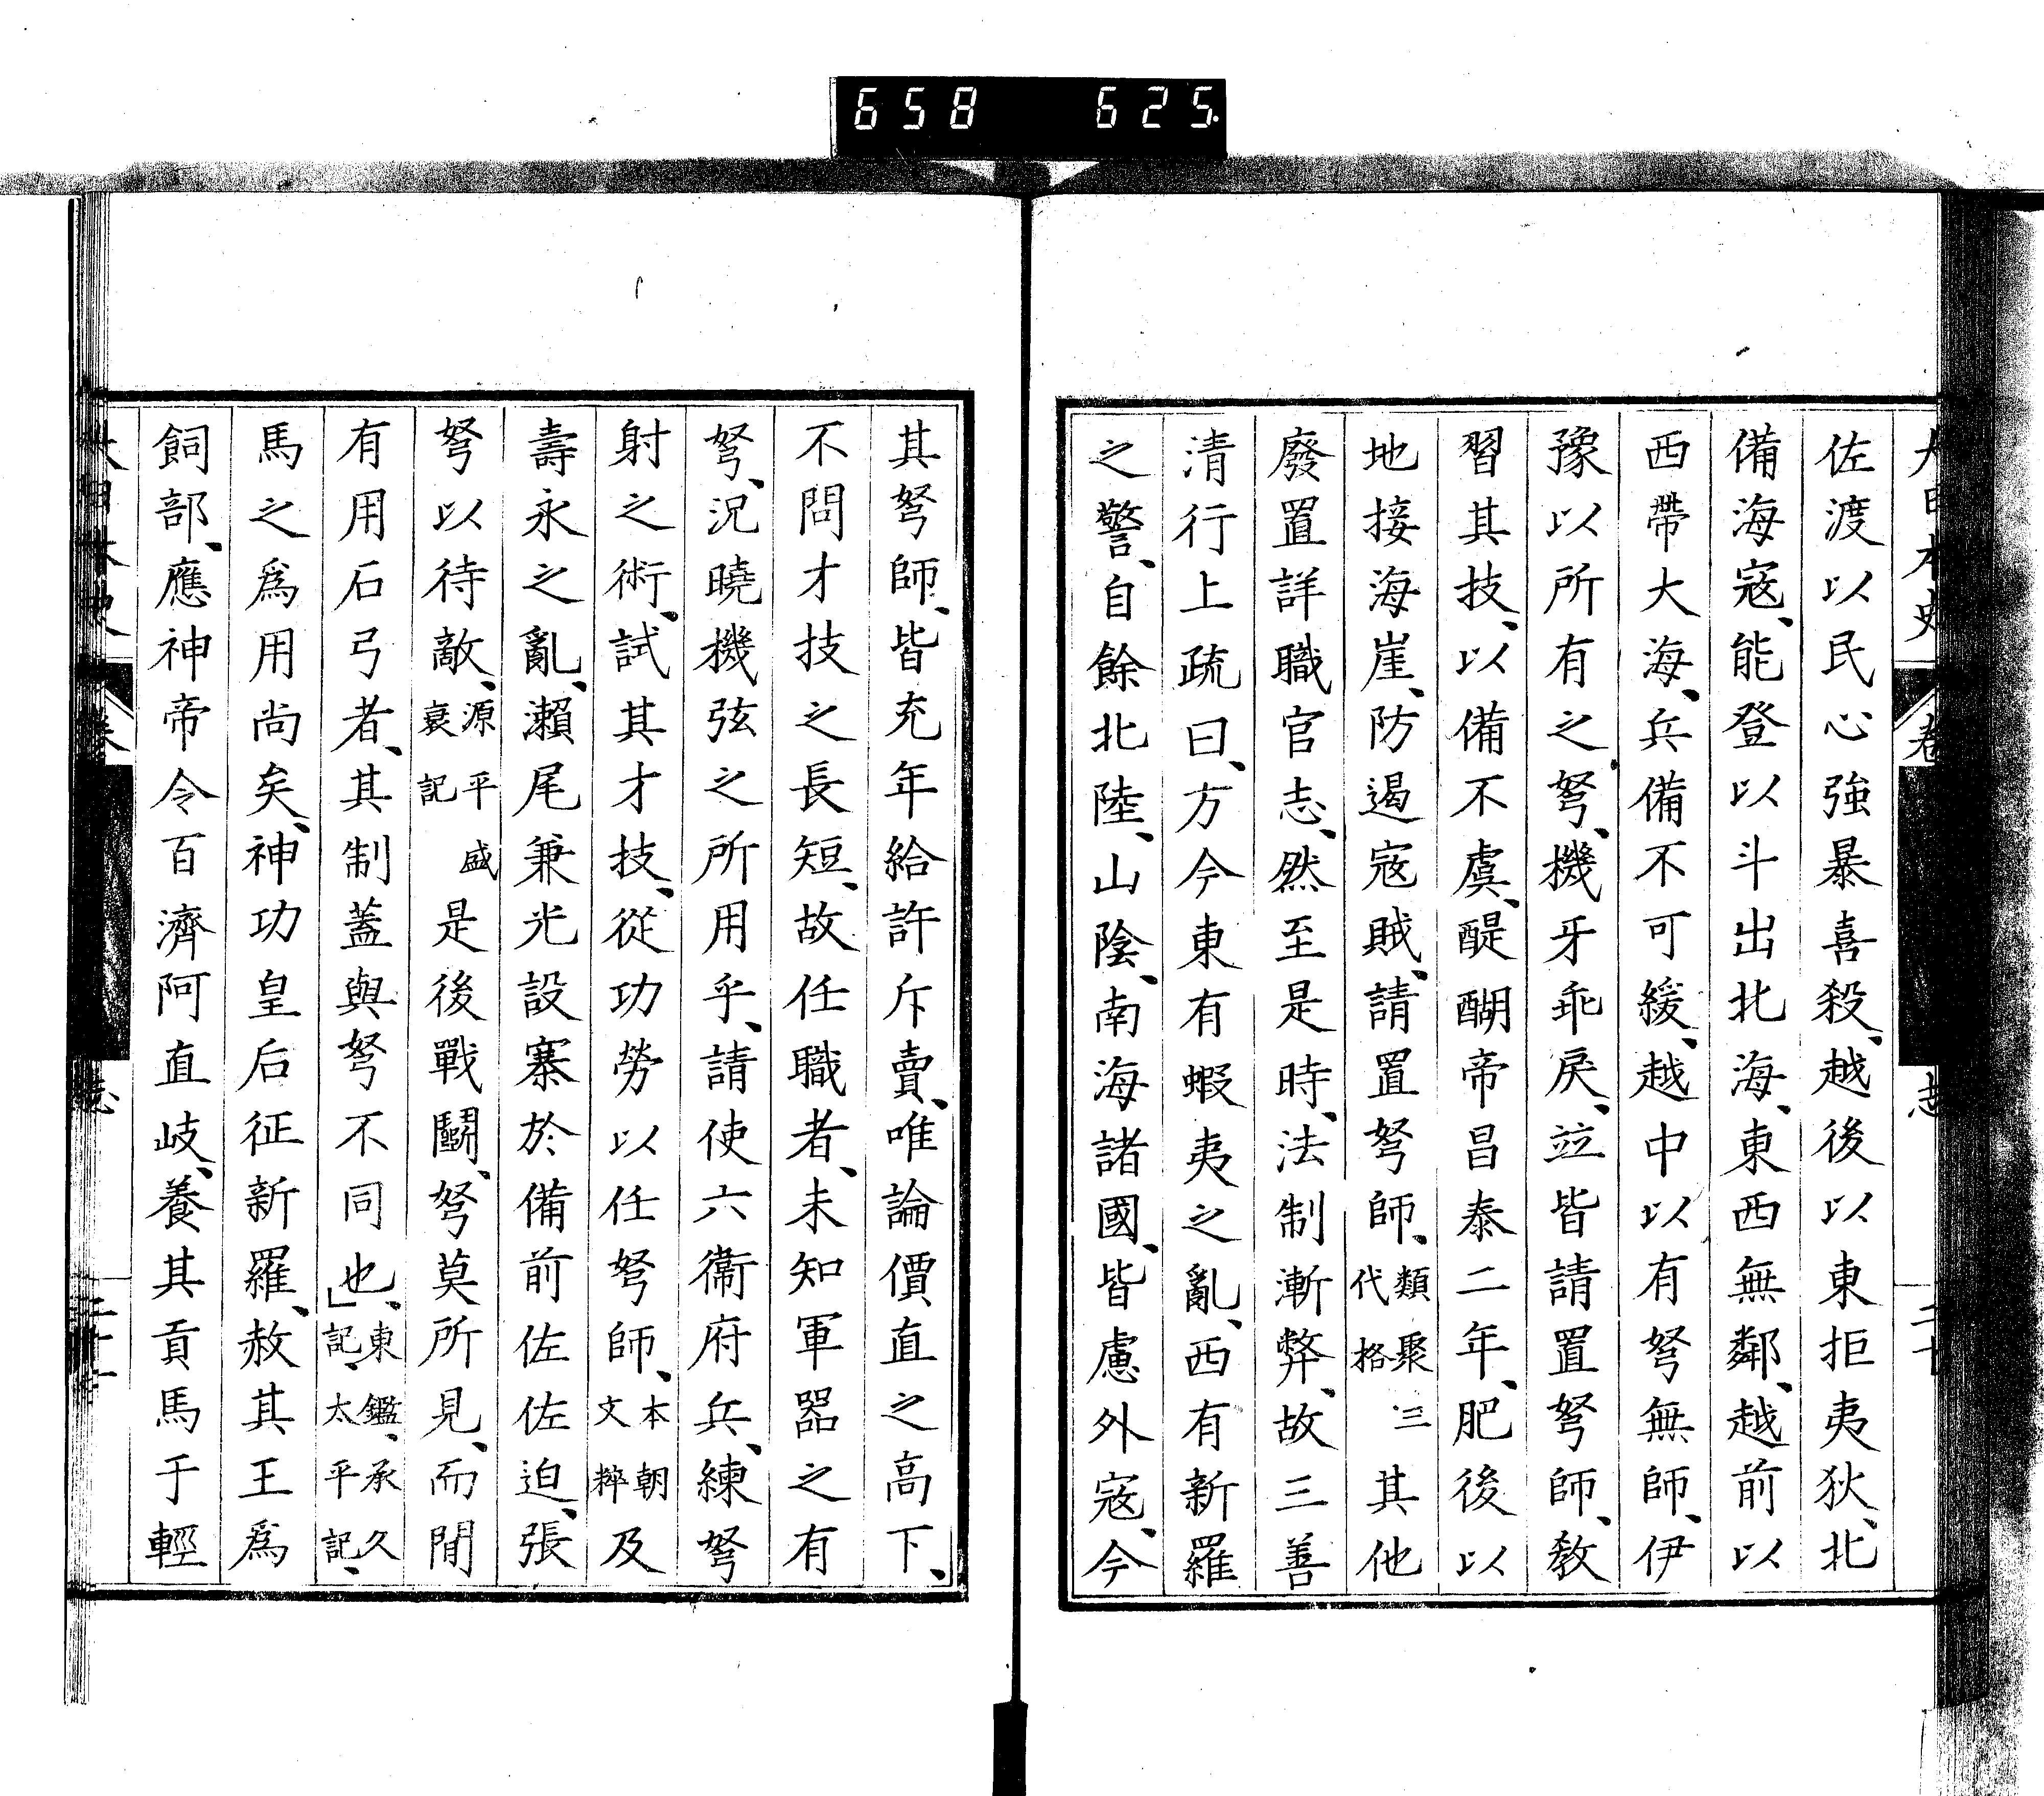 658 625
大日本史 卷 志 二十
佐渡以民心強暴喜殺、越後以東拒夷狄、北
備海寇、能登以斗出北海、東西無鄰、越前以
西帶大海、兵備不可緩、越中以有弩無師、伊
豫以所有之弩、機牙乖戾、竝皆請置弩師、敎
習其技、以備不虞、醍醐帝昌泰二年、肥後以
地接海崖、防遏寇賊、請置弩師、類聚三代格其他
廢置詳職官志、然至是時、法制漸弊、故三善
清行上疏曰、方今東有蝦夷之亂、西有新羅
之警、自餘北陸、山陰、南海諸國、皆慮外寇、今
其弩師、皆充年給許斥賣、唯論價直之高下、
不問才技之長短、故任職者、未知軍器之有
弩、況曉機弦之所用乎、請使六衞府兵、練弩
射之術、試其才技、從功勞以任弩師、本朝文粹及
壽永之亂、瀨尾兼光設寨於備前佐佐迫、張
弩以待敵、源平盛衰記是後戰鬭、弩莫所見、而閒
有用石弓者、其制蓋與弩不同也、」東鑑、承久記、太平記、
馬之爲用尚矣、神功皇后征新羅、赦其王爲
飼部、應神帝令百濟阿直岐、養其貢馬于輕
大日本史 卷 志 二十一